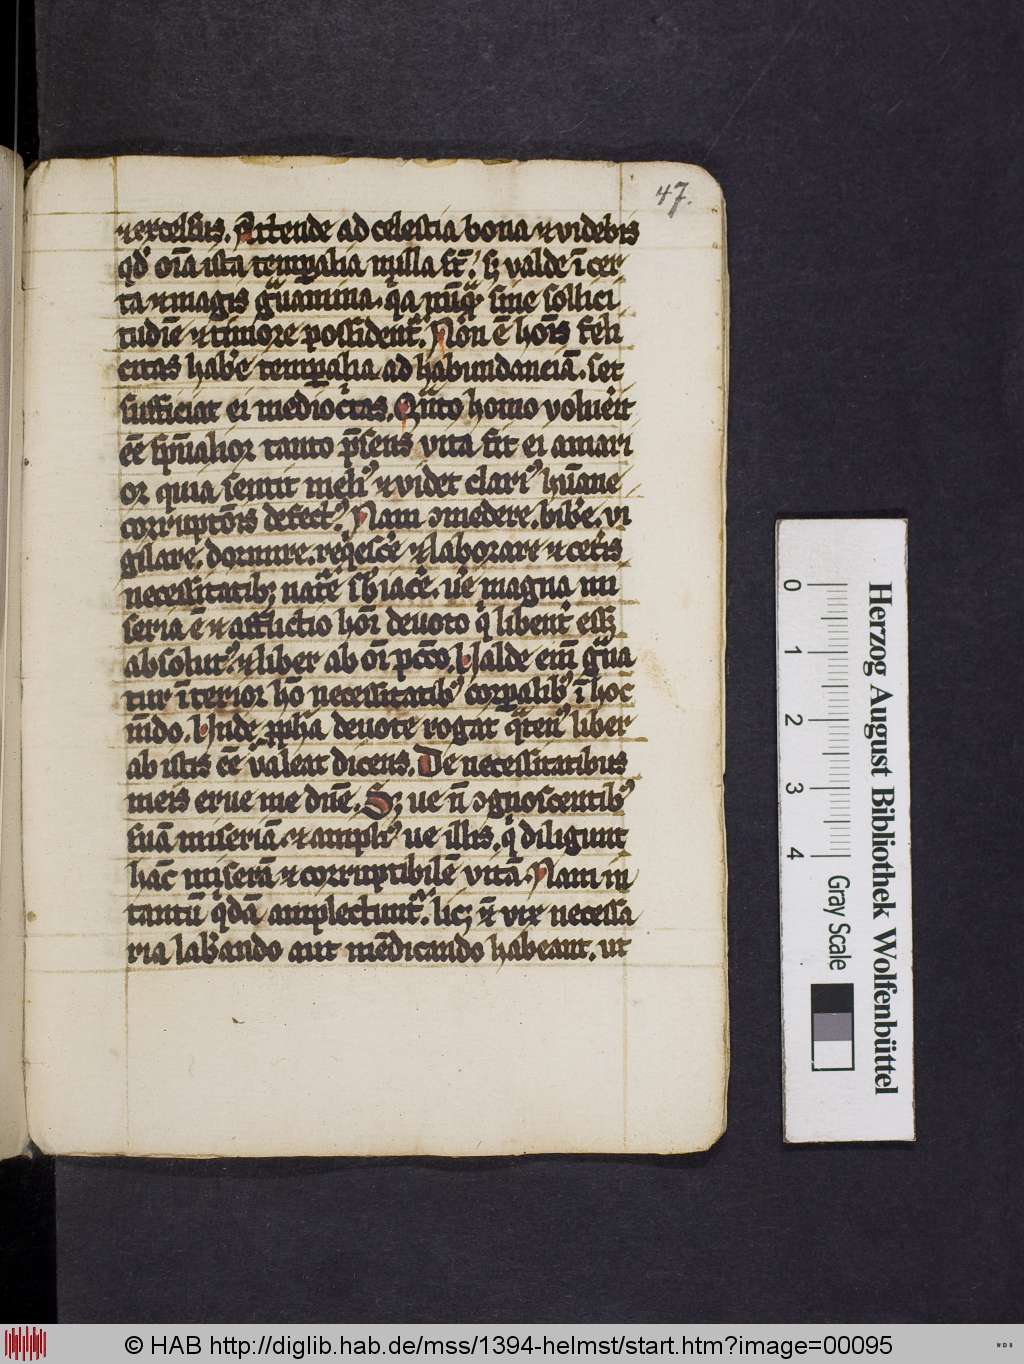 47.
⁊ excelsius. Attende ad celestia bona ⁊ videbis
qđ oīa ista temꝑalia nulla st̄. sꝫ valde īcer
ta ⁊ magis gͣuamina. qͣ nūqͣ sine sollici
tudīe ⁊ timore possident̄. Non ē hoīs feli
citas habe̾ temꝑalia ad habundanciā. set
sufficiat ei mediocͥtas. Qͣnto homo volue̾it
eē sp̄ualior tanto p̄sens vita fit ei amari
or quia sentit meliꝰ ⁊ videt clariꝰ hūane
corruptōis defectꝰ. Nam ꝯmedere. bibe̾. vi
gilare. dormire. reqͥesce̾ ⁊ laborare ⁊ cete̾is
necessitatibꝫ natͤ sbͥiace̾. ve̾ magna mi
seria ē ⁊ afflictio hoī deuoto qͥ libent̾ eēt
absolutꝰ. ⁊ liber ab oī pctō. Valde em̄ gͣua
tur īterior hō necessitatibꝰ corꝑalibꝰ ī hoc
mͦdo. Vnde ꝓpha deuote rogat qͣtenꝰ liber
ab istis eē valeat dicens. De necessitatibus
meis erue me dn̄e. Sꝫ ve n̄ ꝯgnoscentibꝰ
suā miseriā. ⁊ ampliꝰ ve illis. qͥ diligunt
hāc miserā ⁊ corruptibilē vitā. Nam in
tantū qͥdā amplectunt̾. licꝫ ⁊̄ vix necessa
ria labͦando aut mēdicando habeant. ut
Herzog August Bibliothek Wolfenbüttel
0 1 2 3 4 Gray Scale
© HAB http://diglib.hab.de/mss/1394-helmst/start.htm?image=00095